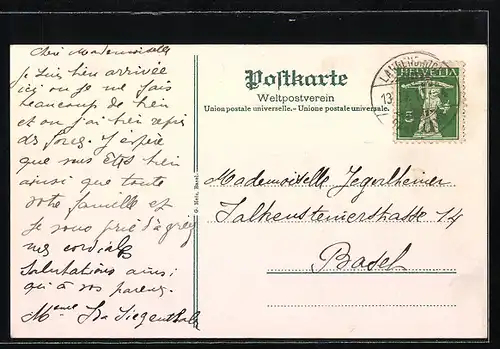 Chère Mademoiselle
je suis bien arrivée
ici ou je me fais
beaucoup de bien
et ou j'ai bien repris
des forces. J'espère
que vous êtes bien
ainsi que toute
votre famille et
je vous prie d'agréer
mes cordiales
Salutations ainsi
qu'à vos parents.
Mme Siegenthaler
Postkarte
Weltpostverein
Union postale universelle. – Unione postale universale.
G. Metz, Basel.
HELVETIA
5
13
Mademoiselle Jegerlheimer
Falkensteinerstrasse 14
Basel